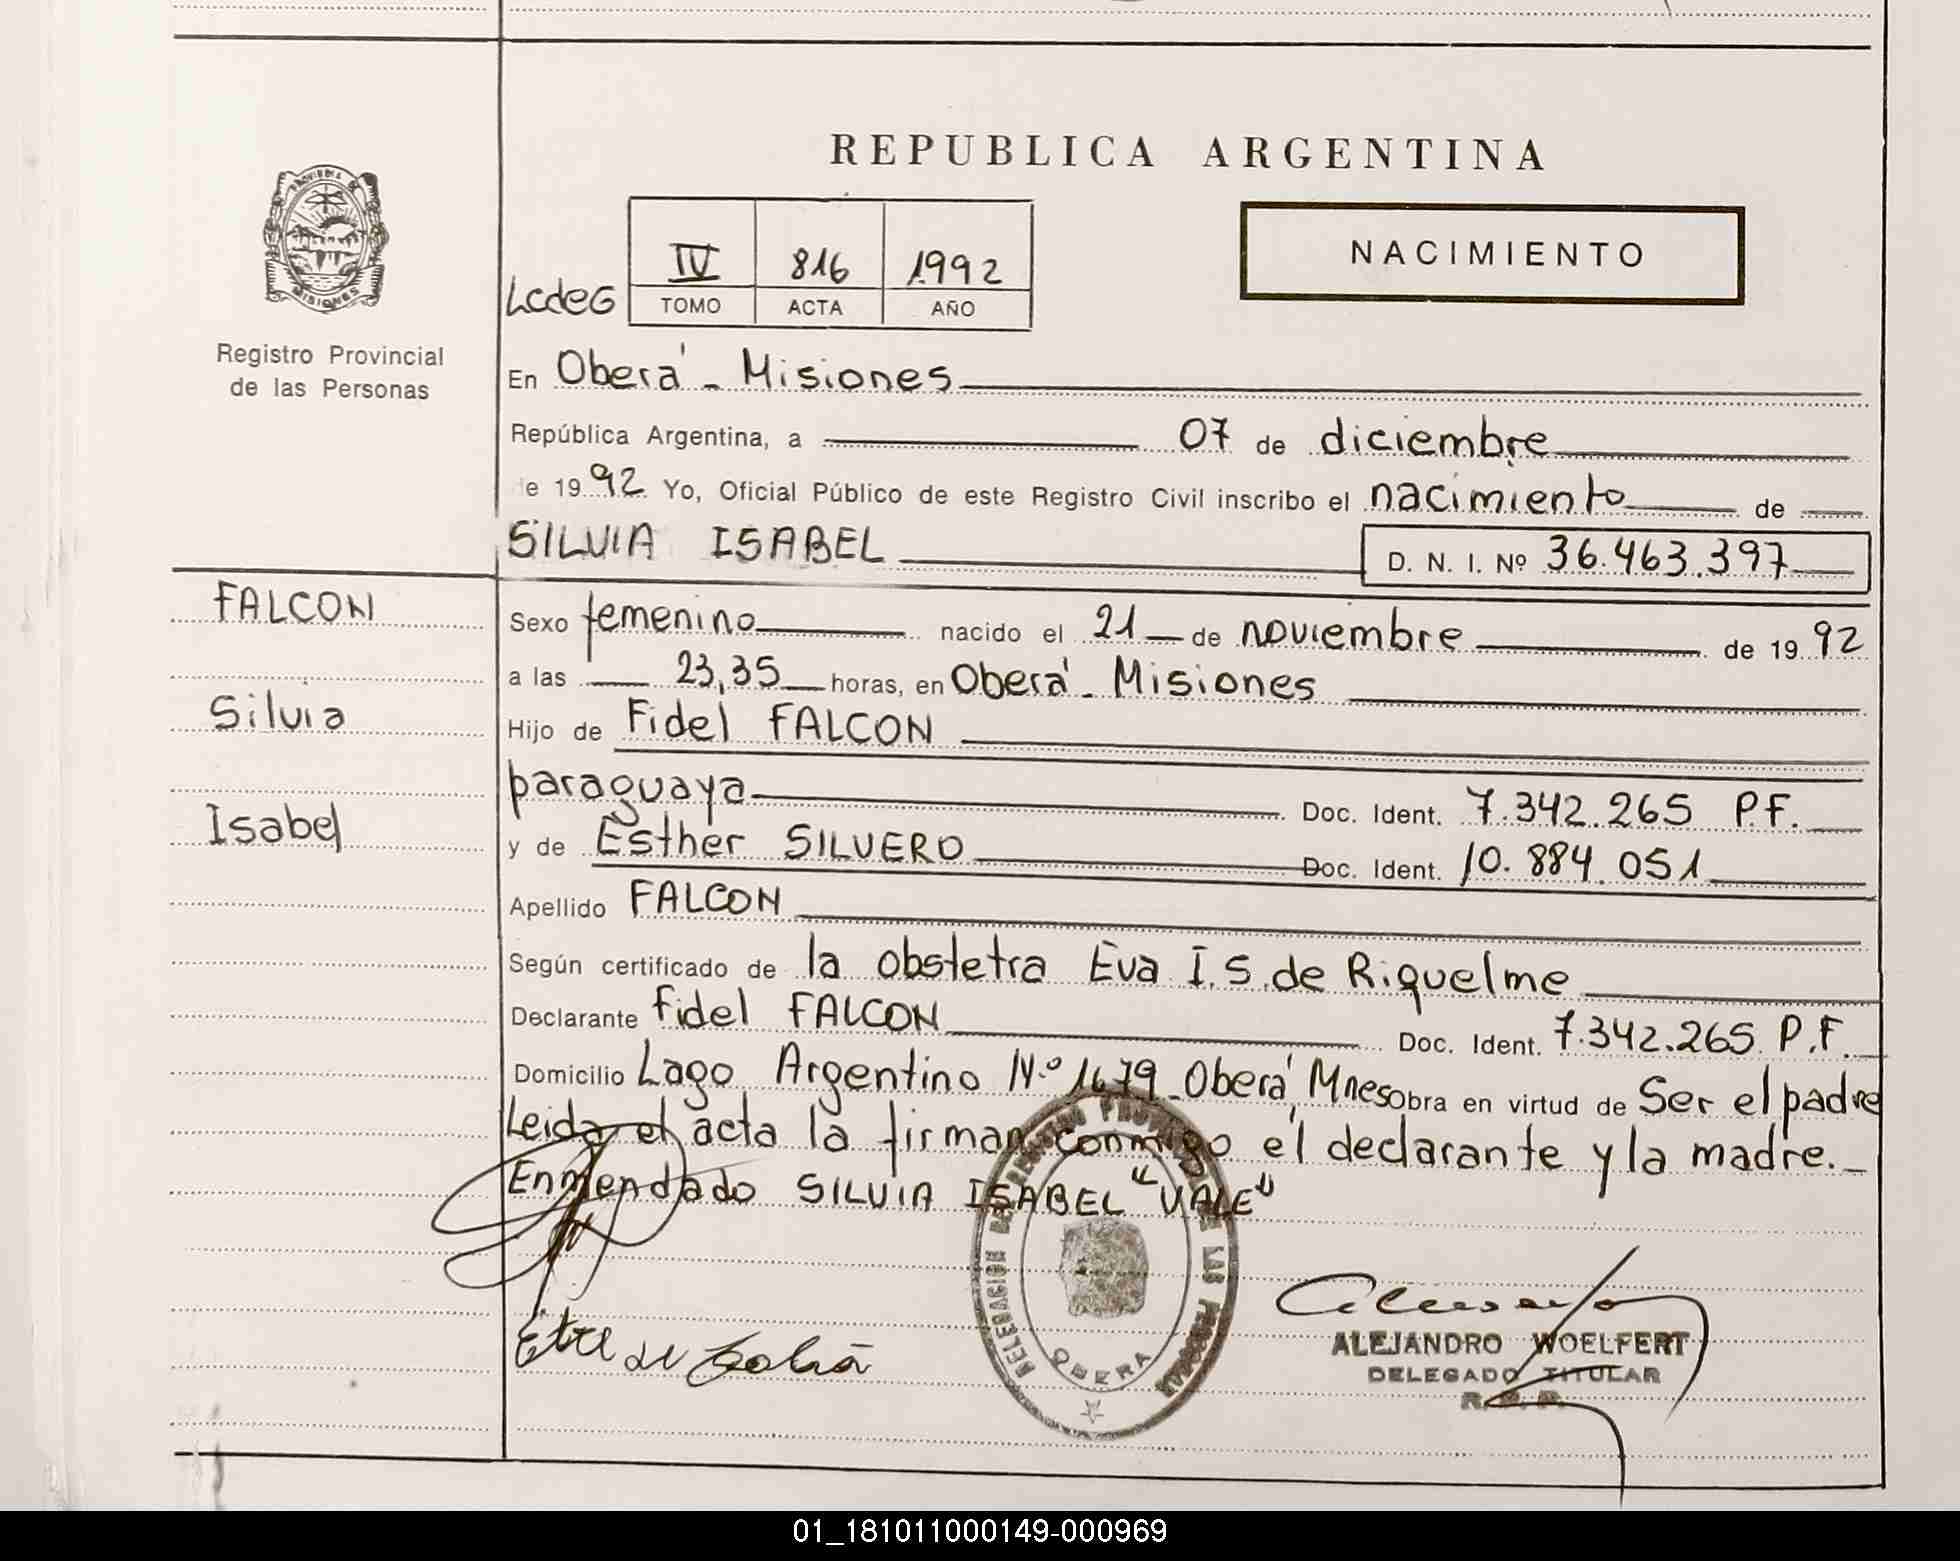 REPUBLICA ARGENTINA
PROVINCIA DE
MISIONES
Registro Provincial
de las Personas
LcdeG
IV 816 1992
TOMO ACTA AÑO
NACIMIENTO
En Oberá - Misiones
República Argentina, a 07 de diciembre
de 1992 Yo, Oficial Público de este Registro Civil inscribo el nacimiento de
SILVIA ISABEL D. N. I. Nº 36.463.397
FALCON
Silvia
Isabel
Sexo femenino nacido el 21 de noviembre de 1992
a las 23,35 horas, en Oberá - Misiones
Hijo de Fidel FALCON
paraguaya Doc. Ident. 7.342.265 P.F.
y de Esther SILVERO Doc. Ident. 10.884.051
Apellido FALCON
Según certificado de la obstetra Eva I.S. de Riquelme
Declarante Fidel FALCON Doc. Ident. 7.342.265 P.F.
Domicilio Lago Argentino N.º 1679 - Oberá, Mnes Obra en virtud de Ser el padre
Leida el acta la firman conmigo él declarante y la madre. -
Enmendado SILVIA ISABEL "VALE"
OBERA
ALEJANDRO WOELFERT
DELEGADO TITULAR
R. P. P.
01_181011000149-000969